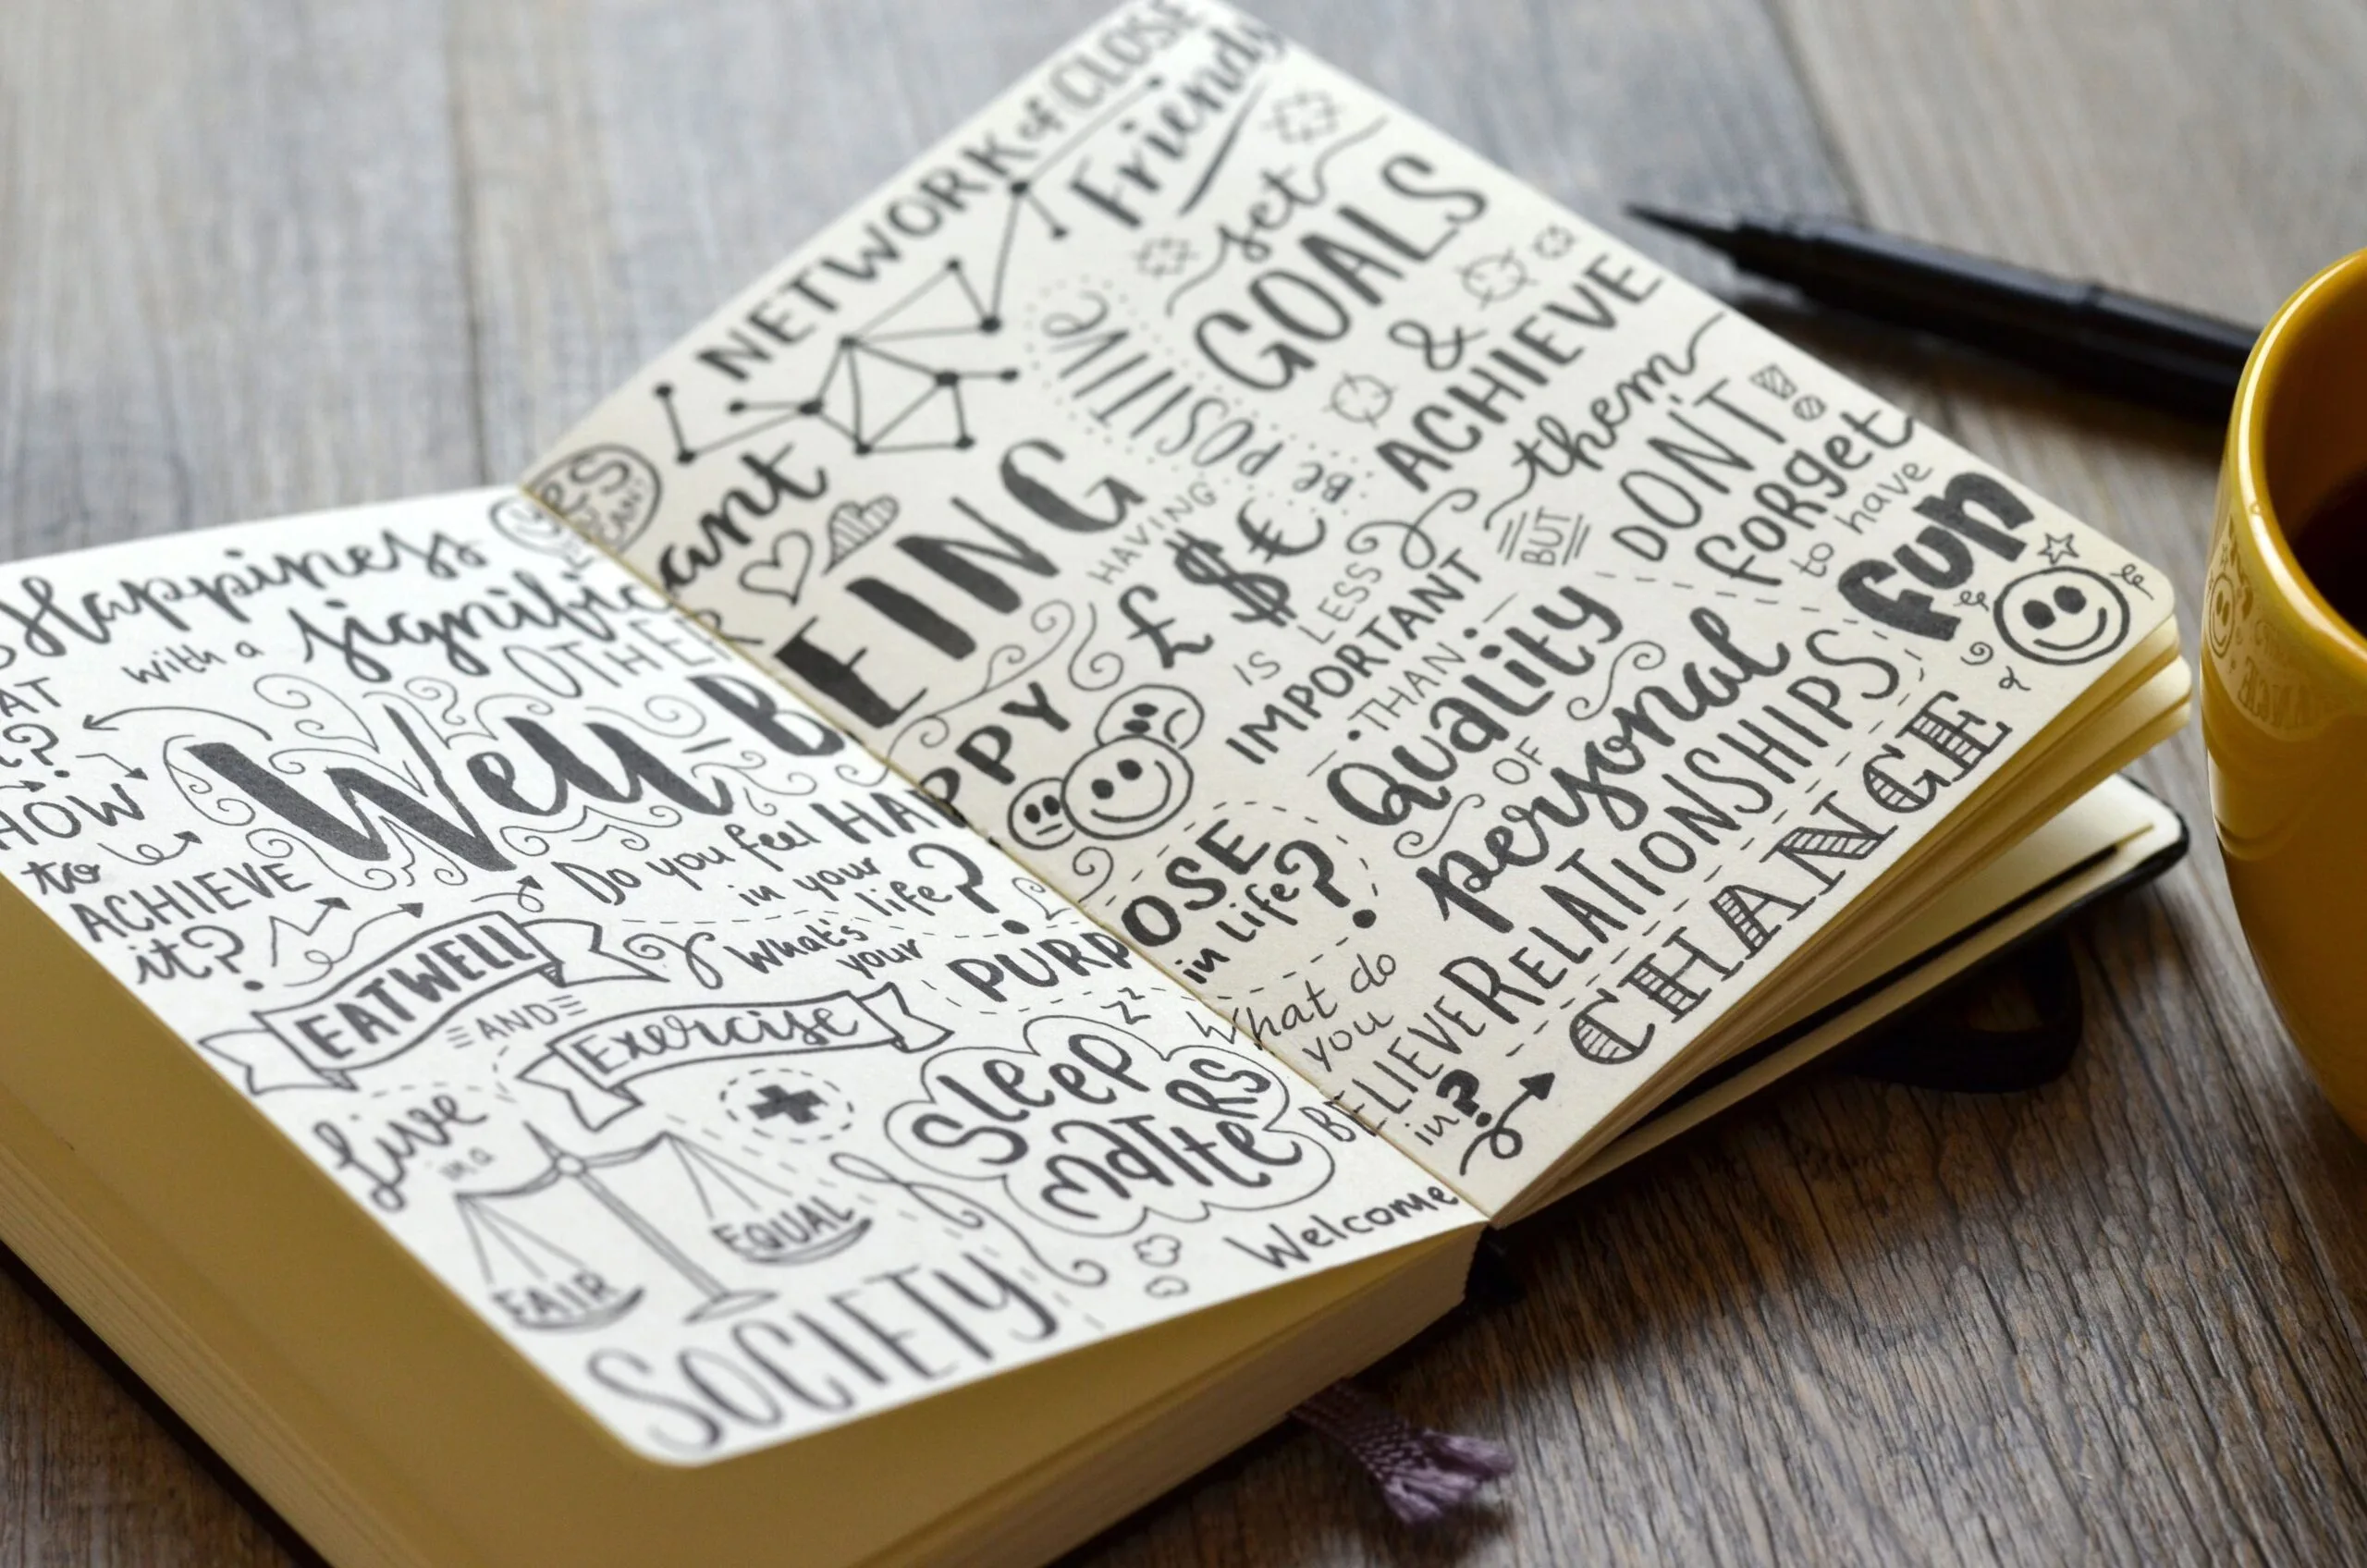 NETWORK of CLOSE
Friends
set
GOALS
&
ACHIEVE
them
BUT
DON'T!!
forget
to have
fun
BE
POSITIVE
YES
YOU
CAN!
Happiness
with a significant
OTHER
WHAT
is it?
HOW
to
ACHIEVE
it?
Well-BEING
HAVING
£$€
IS LESS
IMPORTANT
THAN
Quality
OF
personal
RELATIONSHIPS
Do you feel HAPPY
in your
life?
What's
your
PURPOSE
in life?
EAT WELL
AND
Exercise
Sleep
MATTERS
zz
What do
you
BELIEVE
in?
Live
in a
FAIR
EQUAL
SOCIETY
Welcome
CHANGE